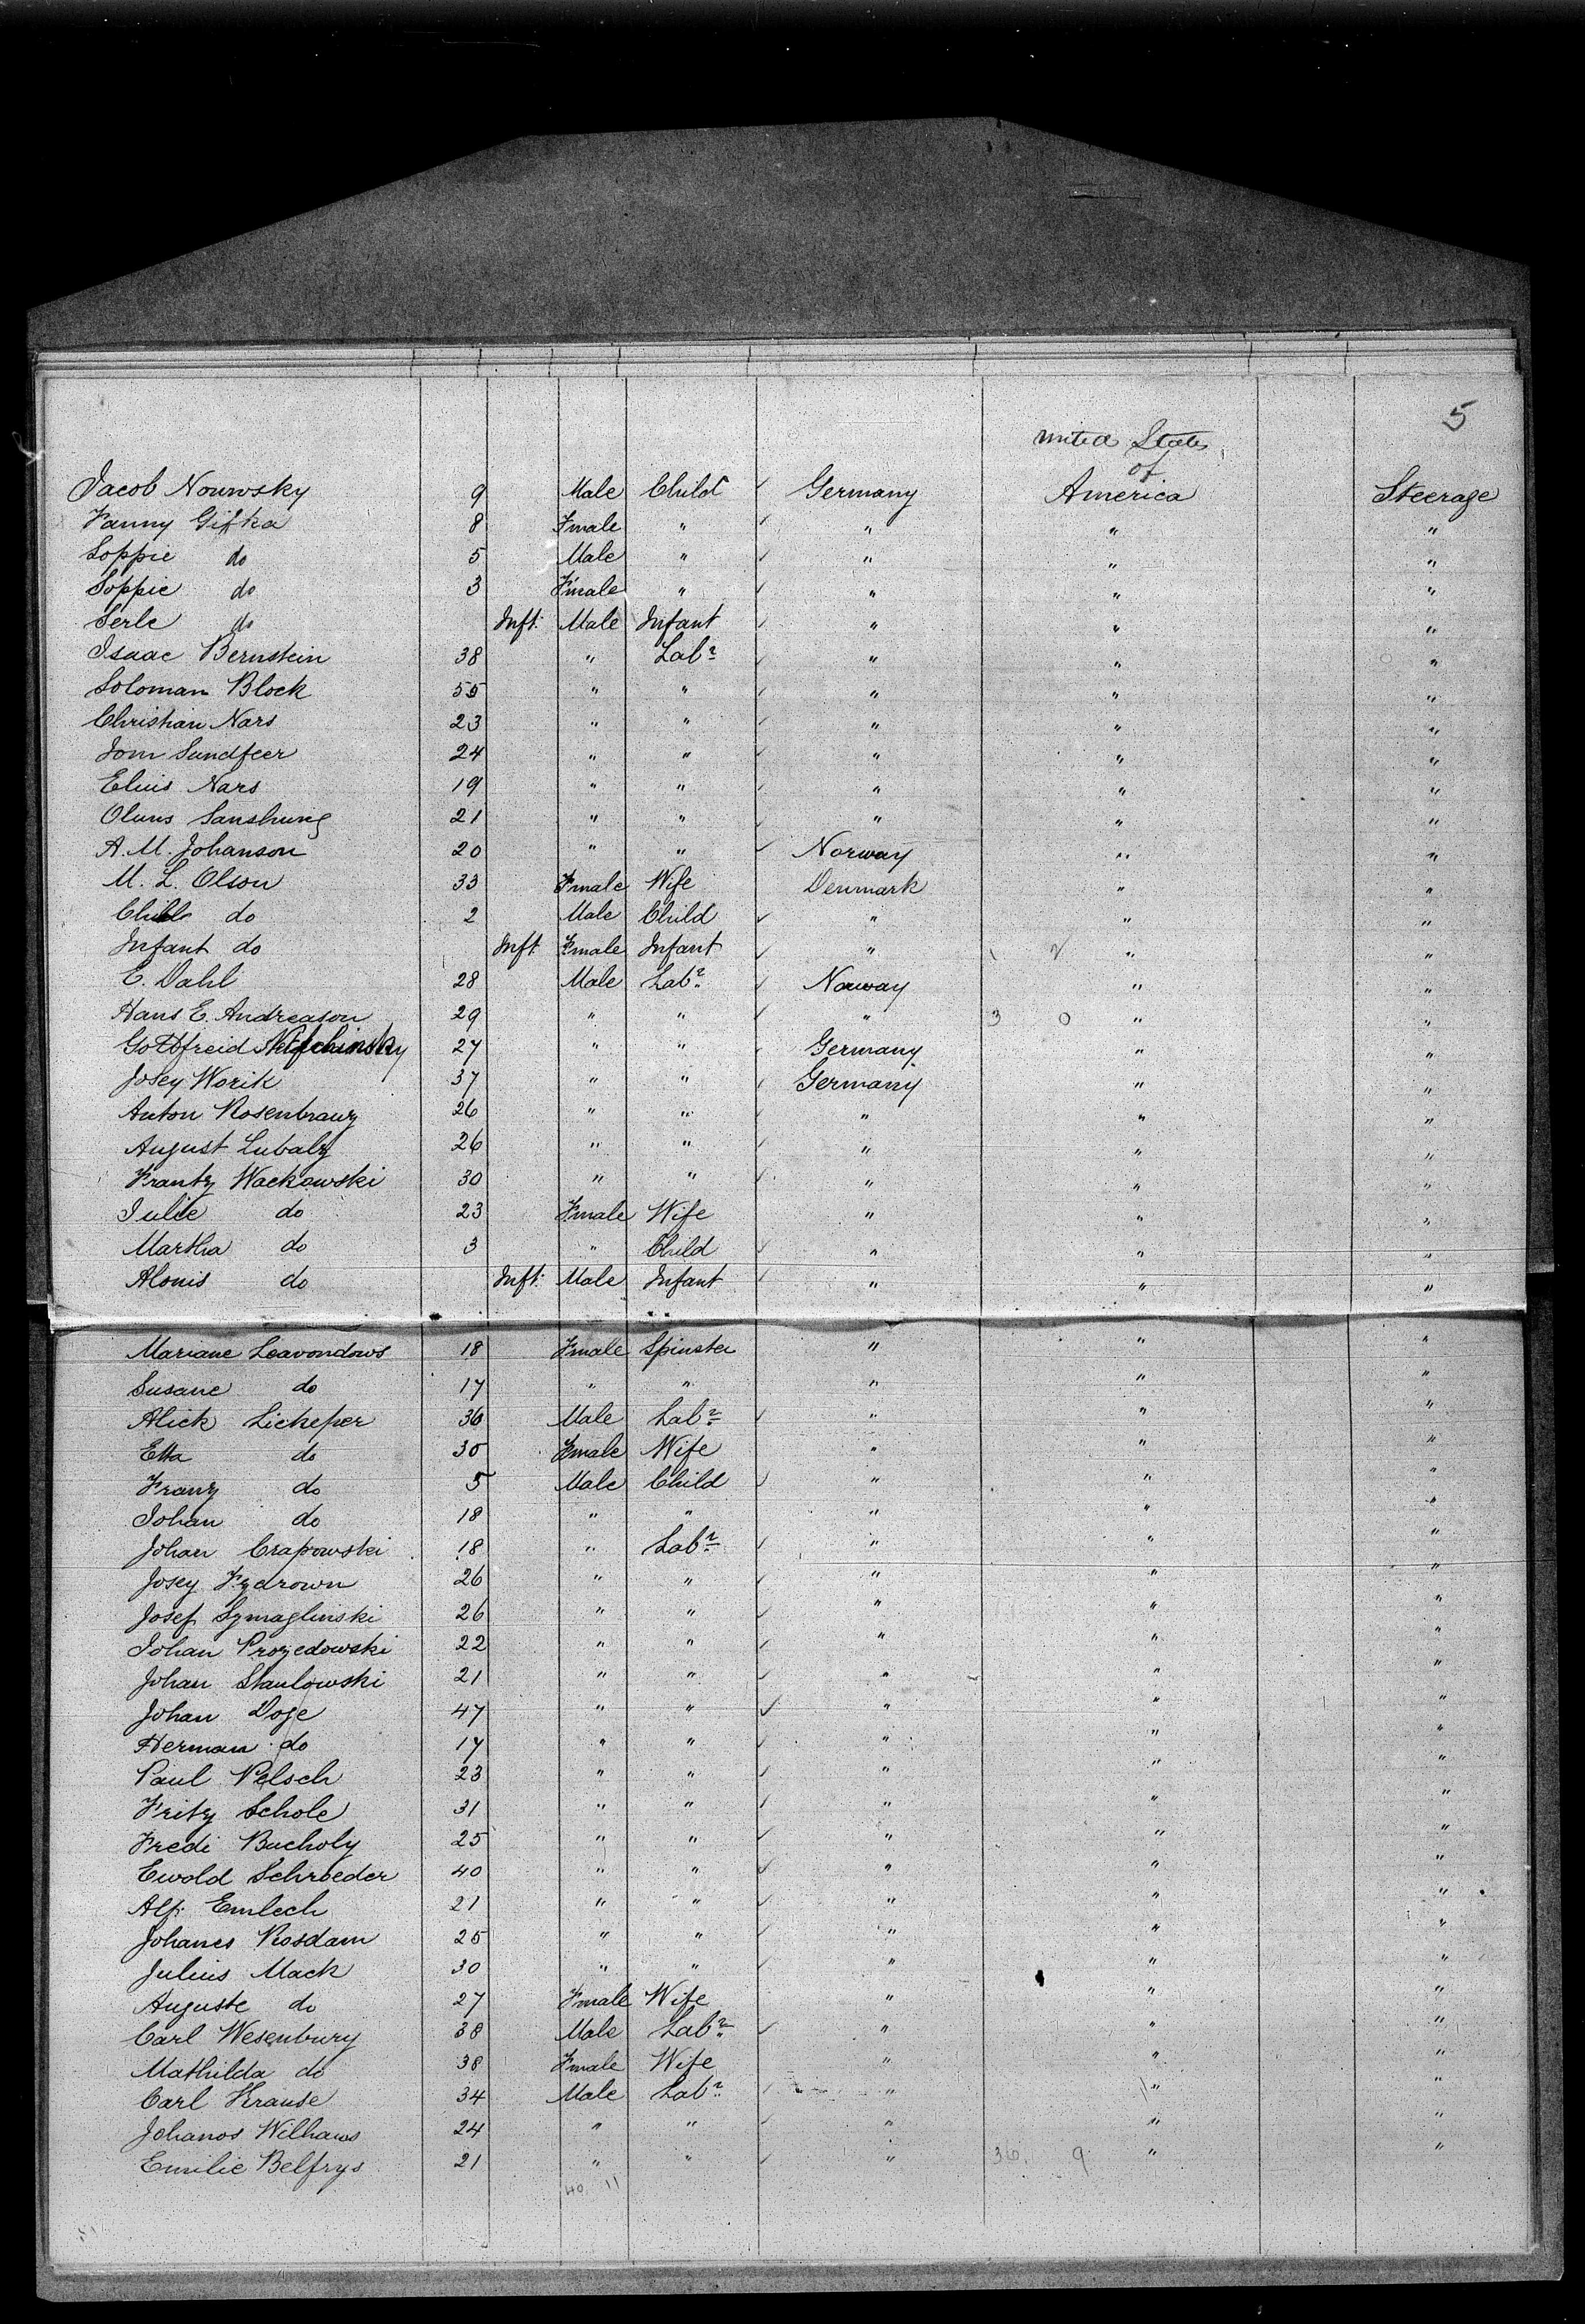 5
United States
of
Jacob Nouwsky 9 Male Child Germany America Steerage
Fanny Gifka 8 Fmale " " " "
Soppie do 5 Male " " " "
Soppie do 3 Fmale " " " "
Serle do Inft. Male Infant " " "
Isaac Bernstein 38 " Labr " " "
Soloman Block 55 " " " " "
Christian Nars 23 " " " " "
Jom Sundfeer 24 " " " " "
Eluis Nars 19 " " " " "
Oluns Sanshung 21 " " " " "
A. M. Johanson 20 " " Norway " "
M. L. Olson 33 Fmale Wife Denmark " "
Child do 2 Male Child " " "
Infant do Inft Fmale Infant " 1 2 " "
E. Dahl 28 Male Labr. Norway " "
Hans E. Andreason 29 " " " 3 0 " "
Gottfreid 27 " " Germany " "
Josey Worik 37 " " Germany " "
Anton Rosenbranz 26 " " " " "
August Lubalz 26 " " " " "
Frantz Wackowski 30 " " " " "
Julie do 23 Fmale Wife " " "
Martha do 3 " Child " " "
Alonis do Inft. Male Infant " " "
Mariane Leavondows 18 Fmale Spinster " " "
Susane do 17 " " " " "
Alick Lickeper 36 Male Labr " " "
Etta do 30 Fmale Wife " " "
Franz do 5 Male Child " " "
Johan do 18 " " " " "
Johan Crapowski 18 " Labr " " "
Josey Fzdrown 26 " " " " "
Josef Symaglinski 26 " " " " "
Johan Prozedowski 22 " " " " "
Johan Staulowski 21 " " " " "
Johan Doge 47 " " " " "
Herman do 17 " " " " "
Paul Pelsch 23 " " " " "
Fritz Schole 31 " " " " "
Fredi Bucholz 25 " " " " "
Ewold Schroeder 40 " " " " "
Alf. Emlech 21 " " " " "
Johanes Rosdam 25 " " " " "
Julius Mack 30 " " " " "
Auguste do 27 Fmale Wife " " "
Carl Wesenbury 38 Male Labr " " "
Mathilda do 38 Fmale Wife " " "
Carl Krause 34 Male Labr. " " "
Johanos Wilhaus 24 " " " " "
Emilie Belfrys 21 " " " 36 9 " "
40 11